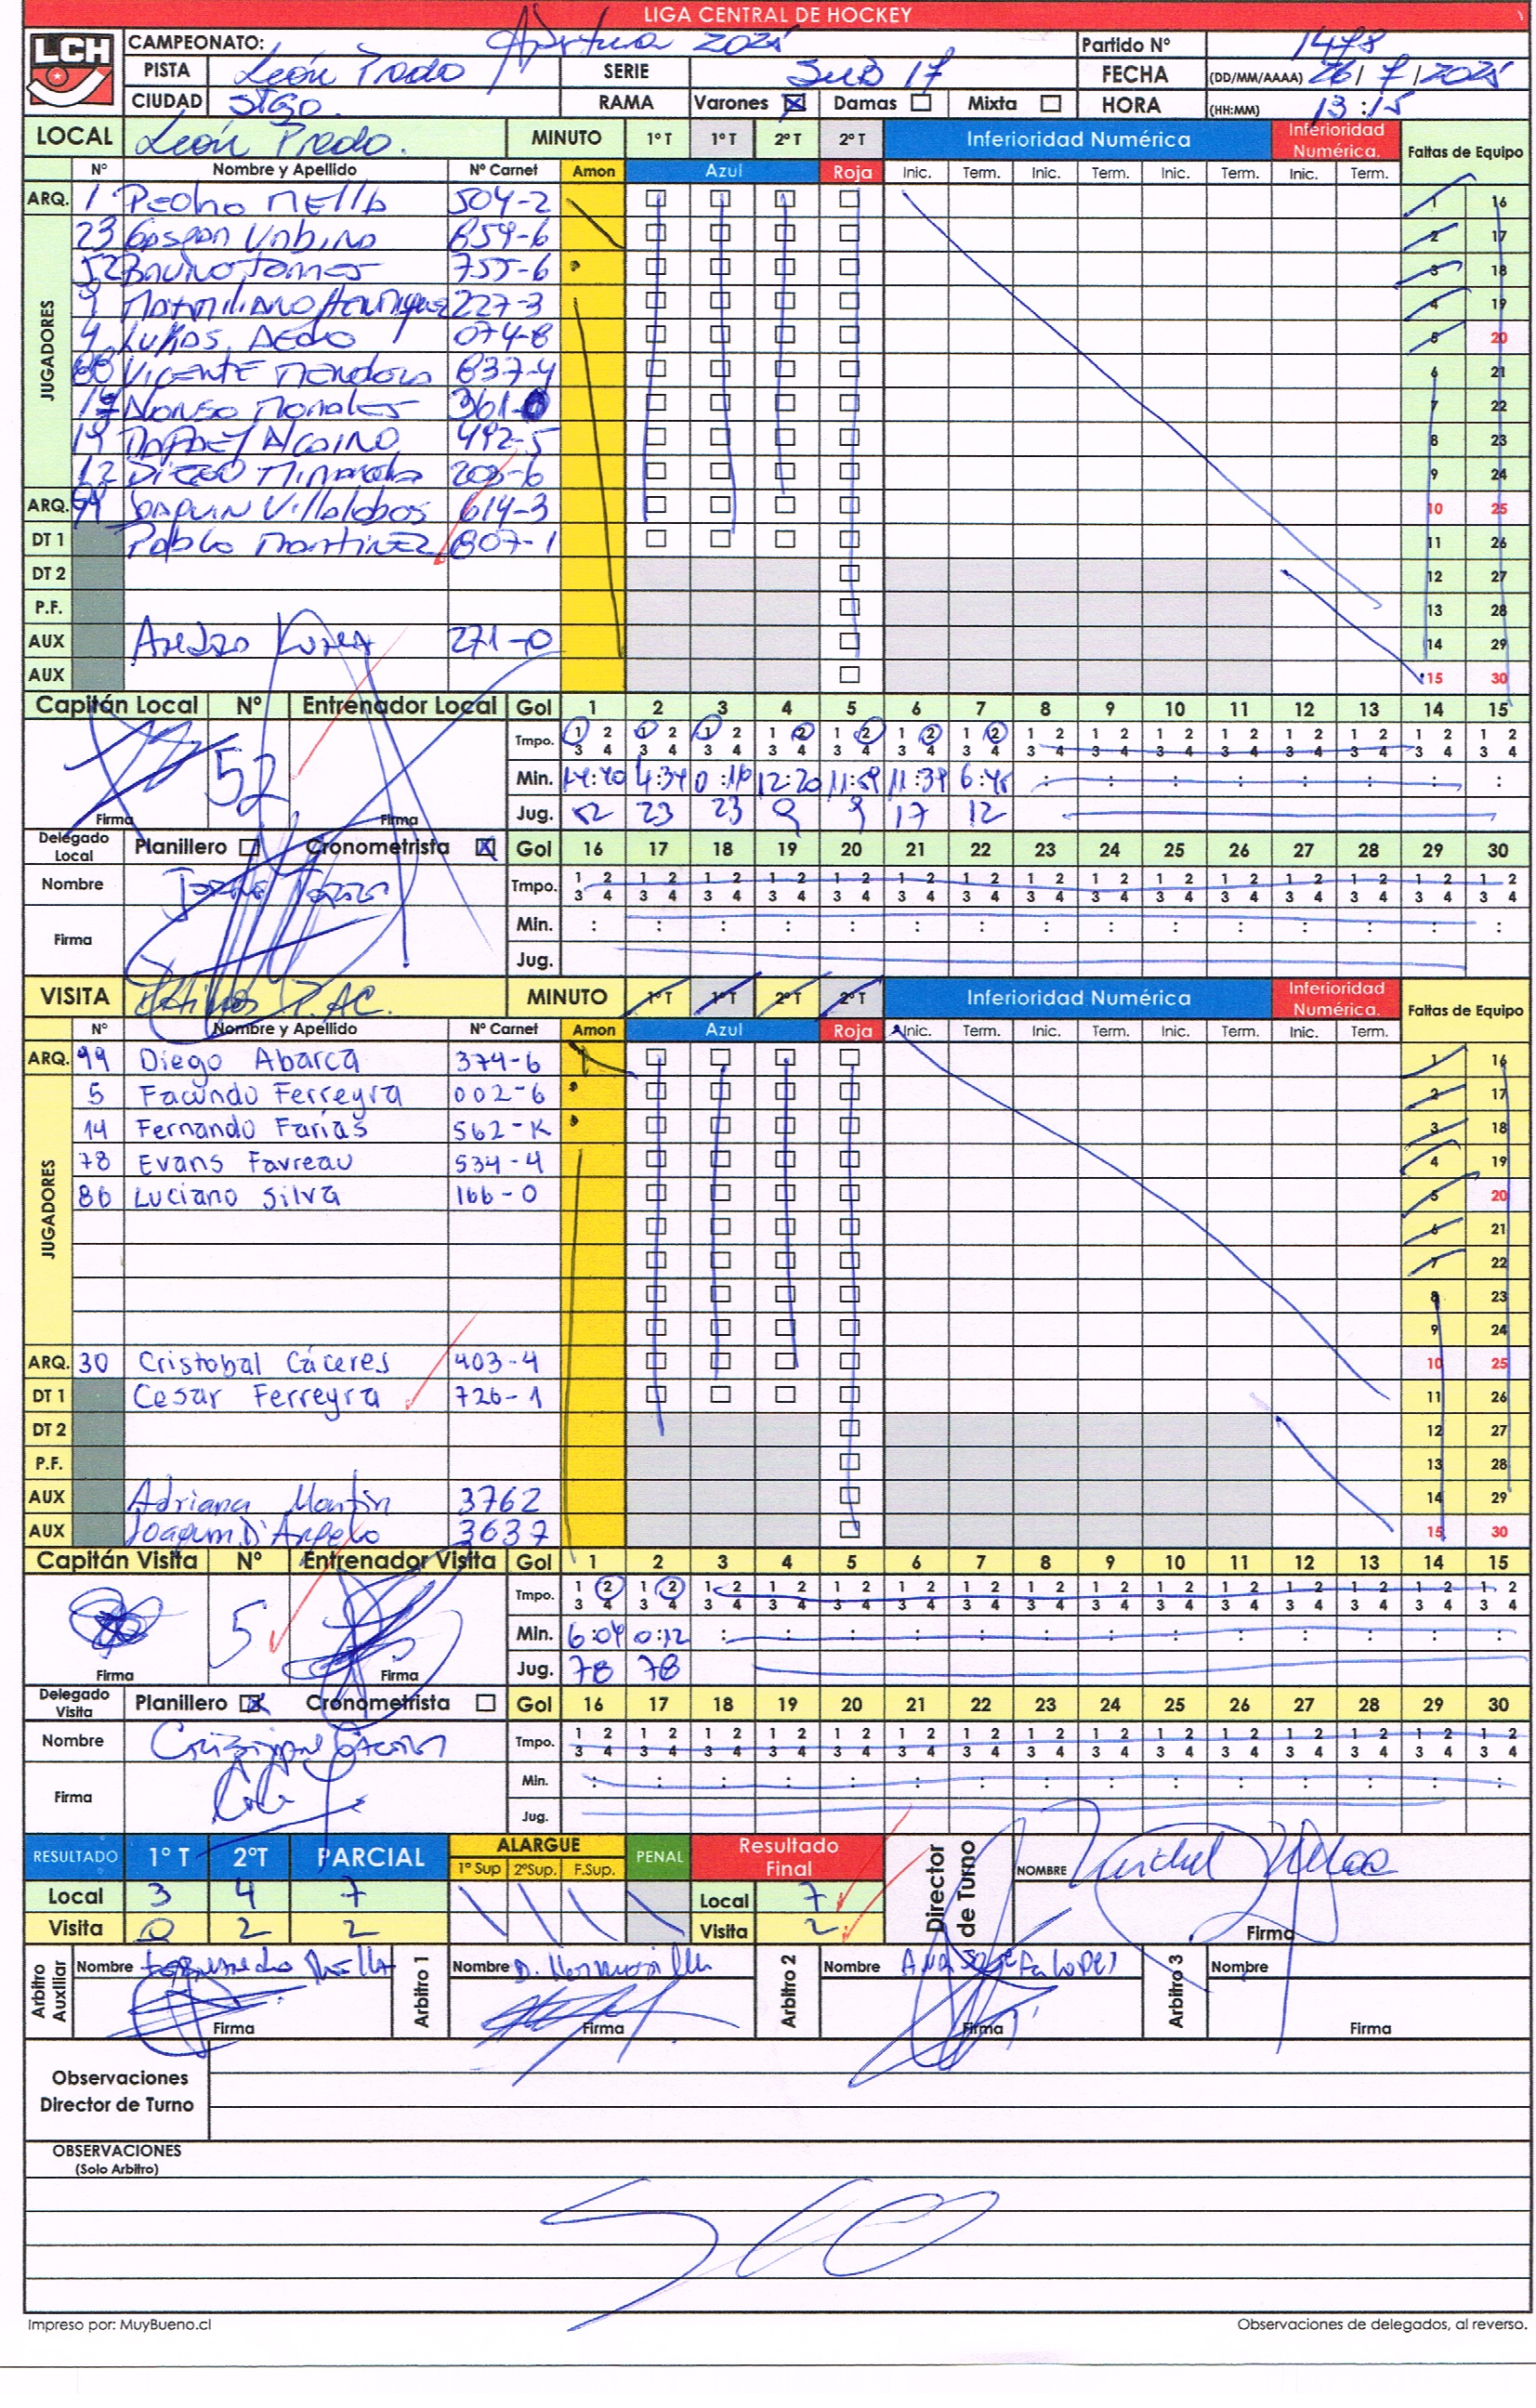 LIGA CENTRAL DE HOCKEY
LCH
CAMPEONATO: Apertura 2025 Partido Nº 1478
PISTA León Prado SERIE SUB 17 FECHA (DD/MM/AAAA) 26/7/2025
CIUDAD STGO. RAMA Varones Damas Mixta HORA (HH:MM) 13:15
LOCAL León Prado. MINUTO 1º T 1º T 2º T 2º T Inferioridad Numérica Inferioridad Numérica. Faltas de Equipo
Nº Nombre y Apellido Nº Carnet Amon Azul Roja Inic. Term. Inic. Term. Inic. Term. Inic. Term.
JUGADORES
ARQ. 1 Pedro Mella 504-2 1 16
23 Gaspar Urbina 659-6 2 17
52 Bruno Torres 755-6 3 18
9 Maximiliano Henriquez 227-3 4 19
4 Lukas Aedo 074-8 5 20
88 Vicente Mendoza 837-4 6 21
17 Alonso Morales 361-0 7 22
19 Rafael Alcaino 492-5 8 23
12 Diego Miranda 208-6 9 24
ARQ. 99 Joaquin Villalobos 614-3 10 25
DT 1 Pablo Martinez 807-1 11 26
DT 2 12 27
P.F. 13 28
AUX 271-0 14 29
AUX 15 30
Capitán Local Nº Entrenador Local Gol 1 2 3 4 5 6 7 8 9 10 11 12 13 14 15
Tmpo. 1 2 3 4 1 2 3 4 1 2 3 4 1 2 3 4 1 2 3 4 1 2 3 4 1 2 3 4 1 2 3 4 1 2 3 4 1 2 3 4 1 2 3 4 1 2 3 4 1 2 3 4 1 2 3 4 1 2 3 4
52 Min. 14:40 4:34 0:16 12:20 11:59 11:39 6:45
Firma Firma Jug. 52 23 23 9 9 17 12
Delegado Local Planillero Cronometrista Gol 16 17 18 19 20 21 22 23 24 25 26 27 28 29 30
Nombre Tmpo. 1 2 3 4 1 2 3 4 1 2 3 4 1 2 3 4 1 2 3 4 1 2 3 4 1 2 3 4 1 2 3 4 1 2 3 4 1 2 3 4 1 2 3 4 1 2 3 4 1 2 3 4 1 2 3 4 1 2 3 4
Firma Min.
Jug.
VISITA P.AC. MINUTO 1º T 1º T 2º T 2º T Inferioridad Numérica Inferioridad Numérica. Faltas de Equipo
Nº Nombre y Apellido Nº Carnet Amon Azul Roja Inic. Term. Inic. Term. Inic. Term. Inic. Term.
JUGADORES
ARQ. 99 Diego Abarca 374-6 1 16
5 Facundo Ferreyra 002-6 2 17
14 Fernando Farias 562-K 3 18
78 Evans Favreau 534-4 4 19
86 Luciano Silva 166-0 5 20
6 21
7 22
8 23
9 24
ARQ. 30 Cristobal Cáceres 403-4 10 25
DT 1 Cesar Ferreyra 726-1 11 26
DT 2 12 27
P.F. 13 28
AUX Adriana Martin 3762 14 29
AUX Joaquin D'Angelo 3637 15 30
Capitán Visita Nº Entrenador Visita Gol 1 2 3 4 5 6 7 8 9 10 11 12 13 14 15
Tmpo. 1 2 3 4 1 2 3 4 1 2 3 4 1 2 3 4 1 2 3 4 1 2 3 4 1 2 3 4 1 2 3 4 1 2 3 4 1 2 3 4 1 2 3 4 1 2 3 4 1 2 3 4 1 2 3 4 1 2 3 4
5 Min. 6:04 0:12
Firma Firma Jug. 78 78
Delegado Visita Planillero Cronometrista Gol 16 17 18 19 20 21 22 23 24 25 26 27 28 29 30
Nombre Tmpo. 1 2 3 4 1 2 3 4 1 2 3 4 1 2 3 4 1 2 3 4 1 2 3 4 1 2 3 4 1 2 3 4 1 2 3 4 1 2 3 4 1 2 3 4 1 2 3 4 1 2 3 4 1 2 3 4 1 2 3 4
Firma Min.
Jug.
RESULTADO 1º T 2ºT PARCIAL ALARGUE 1º Sup 2ºSup. F.Sup. PENAL Resultado Final Director de Turno NOMBRE
Local 3 4 7 Local 7
Visita 0 2 2 Visita 2 Firma
Arbitro Auxiliar Nombre Arbitro 1 Nombre D. Arbitro 2 Nombre Arbitro 3 Nombre
Firma Firma Firma Firma
Observaciones
Director de Turno
OBSERVACIONES
(Solo Arbitro)
Impreso por: MuyBueno.cl Observaciones de delegados, al reverso.